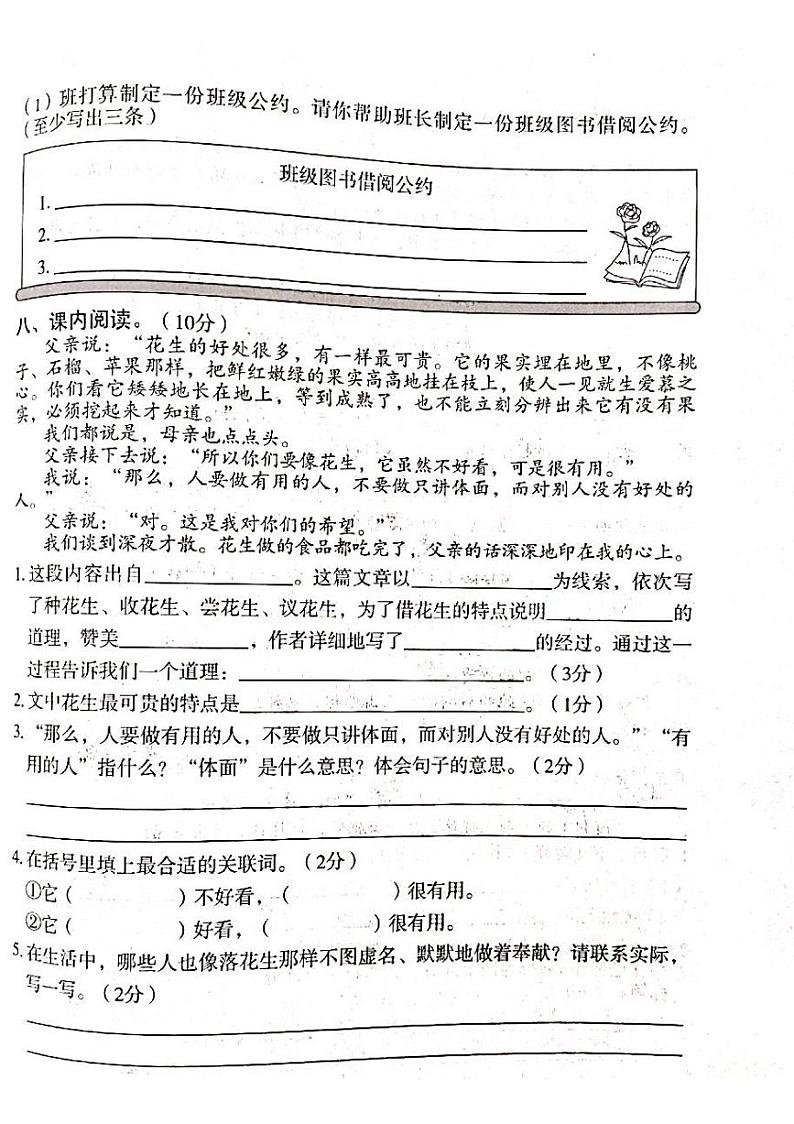 (1)班打算制定一份班级公约。请你帮助班长制定一份班级图书借阅公约。
(至少写出三条)
班级图书借阅公约
1.
2.
3.
八、课内阅读。(10分)
父亲说：“花生的好处很多，有一样最可贵。它的果实埋在地里，不像桃
子、石榴、苹果那样，把鲜红嫩绿的果实高高地挂在枝上，使人一见就生爱慕之
心。你们看它矮矮地长在地上，等到成熟了，也不能立刻分辨出来它有没有果
实，必须挖起来才知道。”
我们都说是，母亲也点点头。
父亲接下去说：“所以你们要像花生，它虽然不好看，可是很有用。”
我说：“那么，人要做有用的人，不要做只讲体面，而对别人没有好处的
人。”
父亲说：“对。这是我对你们的希望。”
我们谈到深夜才散。花生做的食品都吃完了，父亲的话深深地印在我的心上。
1.这段内容出自 。这篇文章以 为线索，依次写
了种花生、收花生、尝花生、议花生，为了借花生的特点说明 的
道理，赞美 ，作者详细地写了 的经过。通过这一
过程告诉我们一个道理： 。(3分)
2.文中花生最可贵的特点是 。(1分)
3.“那么，人要做有用的人，不要做只讲体面，而对别人没有好处的人。”“有
用的人”指什么？“体面”是什么意思？体会句子的意思。(2分)
4.在括号里填上最合适的关联词。(2分)
①它( )不好看，( )很有用。
②它( )好看，( )很有用。
5.在生活中，哪些人也像落花生那样不图虚名、默默地做着奉献？请联系实际，
写一写。(2分)